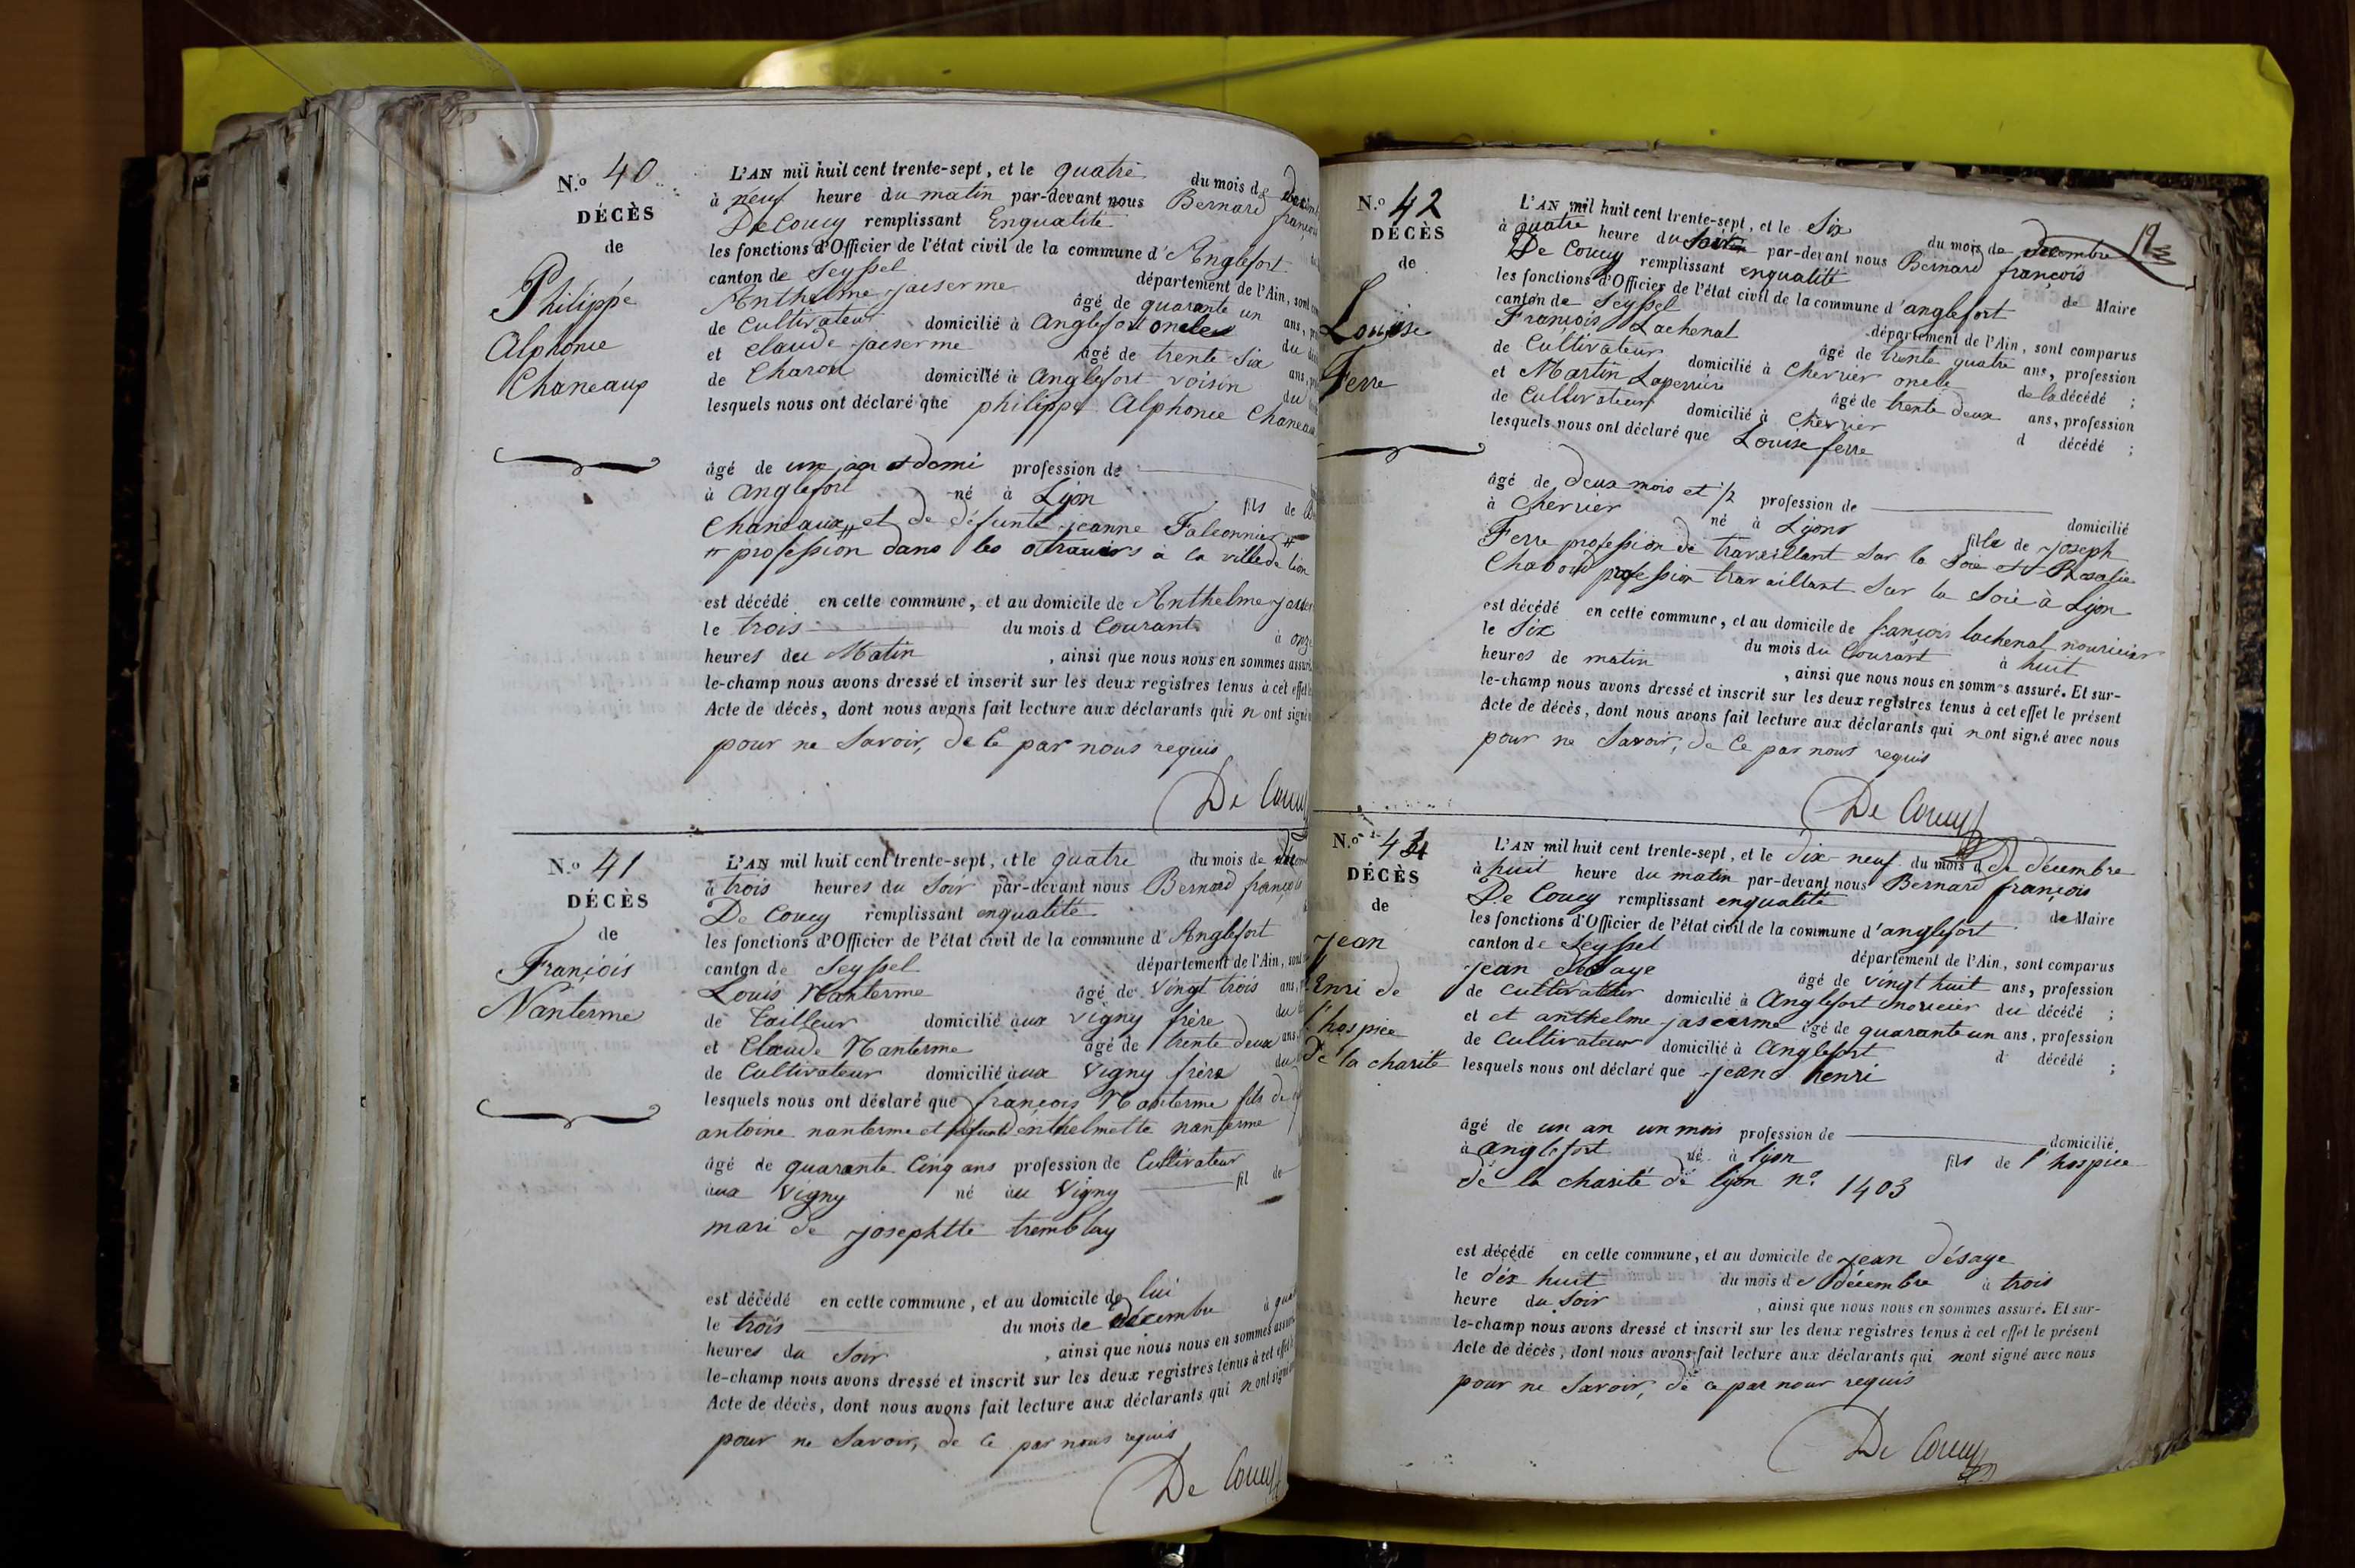 N.o 40
DÉCÈS
de
Philippe
Alphonce
Chaneaux
L'AN mil huit cent trente-sept, et le quatre du mois de
à neuf heure du matin par-devant nous Bernard françois
De Coucy remplissant Enqualité
les fonctions d'Officier de l'état civil de la commune d'Anglefort
canton de Seyssel département de l'Ain, sont
Anthelme jaiserme âgé de quarante un ans,
de Cultivateur domicilié à Anglefort oncle du
et Claude jaiserme âgé de trente Six ans,
de Charon domicilié à Anglefort voisin du
lesquels nous ont déclaré que philippe Alphonce Chaneaux
âgé de un an et demi profession de
à Anglefort né à Lyon fils de
Chaneaux # et de défunte jeanne Falconnier #
# profession dans les à la ville de lion
est décédé en cette commune, et au domicile de Anthelme
le trois du mois d Courant à onze
heures du Matin , ainsi que nous nous en sommes assuré
le-champ nous avons dressé et inscrit sur les deux registres tenus à cet effet
Acte de décès, dont nous avons fait lecture aux déclarants qui n ont signé
pour ne Savoir, de Ce par nous requis
De Coucy
N.o 41
DÉCÈS
de
François
Nanterme
L'AN mil huit cent trente-sept, et le quatre du mois de
à trois heures du Soir par-devant nous Bernard françois
De Coucy remplissant enqualité
les fonctions d'Officier de l'état civil de la commune d'Anglefort
canton de Seyssel département de l'Ain, sont
Louis Nanterme âgé de Vingt trois ans,
de tailleur domicilié aux Vigny frère du
et Claude Nanterme âgé de trente deux ans
de Cultivateur domicilié aux Vigny frère du
lesquels nous ont déclaré que françois Nanterme fils de
antoine nanterme et enthelmette nanterme
âgé de quarante Cinq ans profession de Cultivateur
aux Vigny né au Vigny fil de
mari de josephtte tremblay
est décédé en cette commune, et au domicile de lui
le trois du mois de décembre à
heures du Soir , ainsi que nous nous en sommes assuré
le-champ nous avons dressé et inscrit sur les deux registres tenus à cet effet
Acte de décès, dont nous avons fait lecture aux déclarants qui n ont signé
pour ne Savoir, de Ce par nous requis
De Coucy
N.o 42
DÉCÈS
de
Louise
Ferre
L'AN mil huit cent trente-sept, et le Six du mois de decembre
à quatre heure du par-devant nous Bernard françois
De Coucy remplissant enqualité de Maire
les fonctions d'Officier de l'état civil de la commune d'anglefort
canton de Seyssel département de l'Ain, sont comparus
François Lachenal âgé de trente quatre ans, profession
de Cultivateur domicilié à Chervier oncle de la décédé ;
et Martin Laperriere âgé de trente deux ans, profession
de Cultivateur domicilié à Chervier d décédé ;
lesquels nous ont déclaré que Louise ferre
âgé de deux mois et 1/2 profession de domicilié
à Chervier né à Lyons fille de joseph
Ferre profession de travaillant Sur la Soie et Rosalie
Chaboud profession travaillant Sur la Soie à Lyon
est décédé en cette commune, et au domicile de françois lachenal nouricier
le Six du mois du Courant à huit
heures de matin , ainsi que nous nous en sommes assuré. Et sur-
le-champ nous avons dressé et inscrit sur les deux registres tenus à cet effet le présent
Acte de décès, dont nous avons fait lecture aux déclarants qui n ont signé avec nous
pour ne Savoir, de Ce par nous requis
De Coucy
DÉCÈS
de
jean
Enri de
l'hospice
de la charité
L'AN mil huit cent trente-sept, et le dix-neuf du mois d de décembre
à huit heure du matin par-devant nous Bernard françois
De Coucy remplissant enqualité de Maire
les fonctions d'Officier de l'état civil de la commune d'anglefort
canton de Seyssel département de l'Ain, sont comparus
jean désaye âgé de vingt huit ans, profession
de cultivateur domicilié à Anglefort nouricier du décédé ;
et et anthelme jaiserme âgé de quarante un ans, profession
de Cultivateur domicilié à Anglefort d décédé ;
lesquels nous ont déclaré que jean henri
âgé de un an un mois profession de domicilié
à anglefort né à lyon fils de l'hospice
de la charité de lyon n.o 1403
est décédé en cette commune, et au domicile de jean désaye
le dix huit du mois de décembre à trois
heure du Soir , ainsi que nous nous en sommes assuré. Et sur-
le-champ nous avons dressé et inscrit sur les deux registres tenus à cet effet le présent
Acte de décès, dont nous avons fait lecture aux déclarants qui n ont signé avec nous
pour ne Savoir, de ce par nous requis
De Coucy